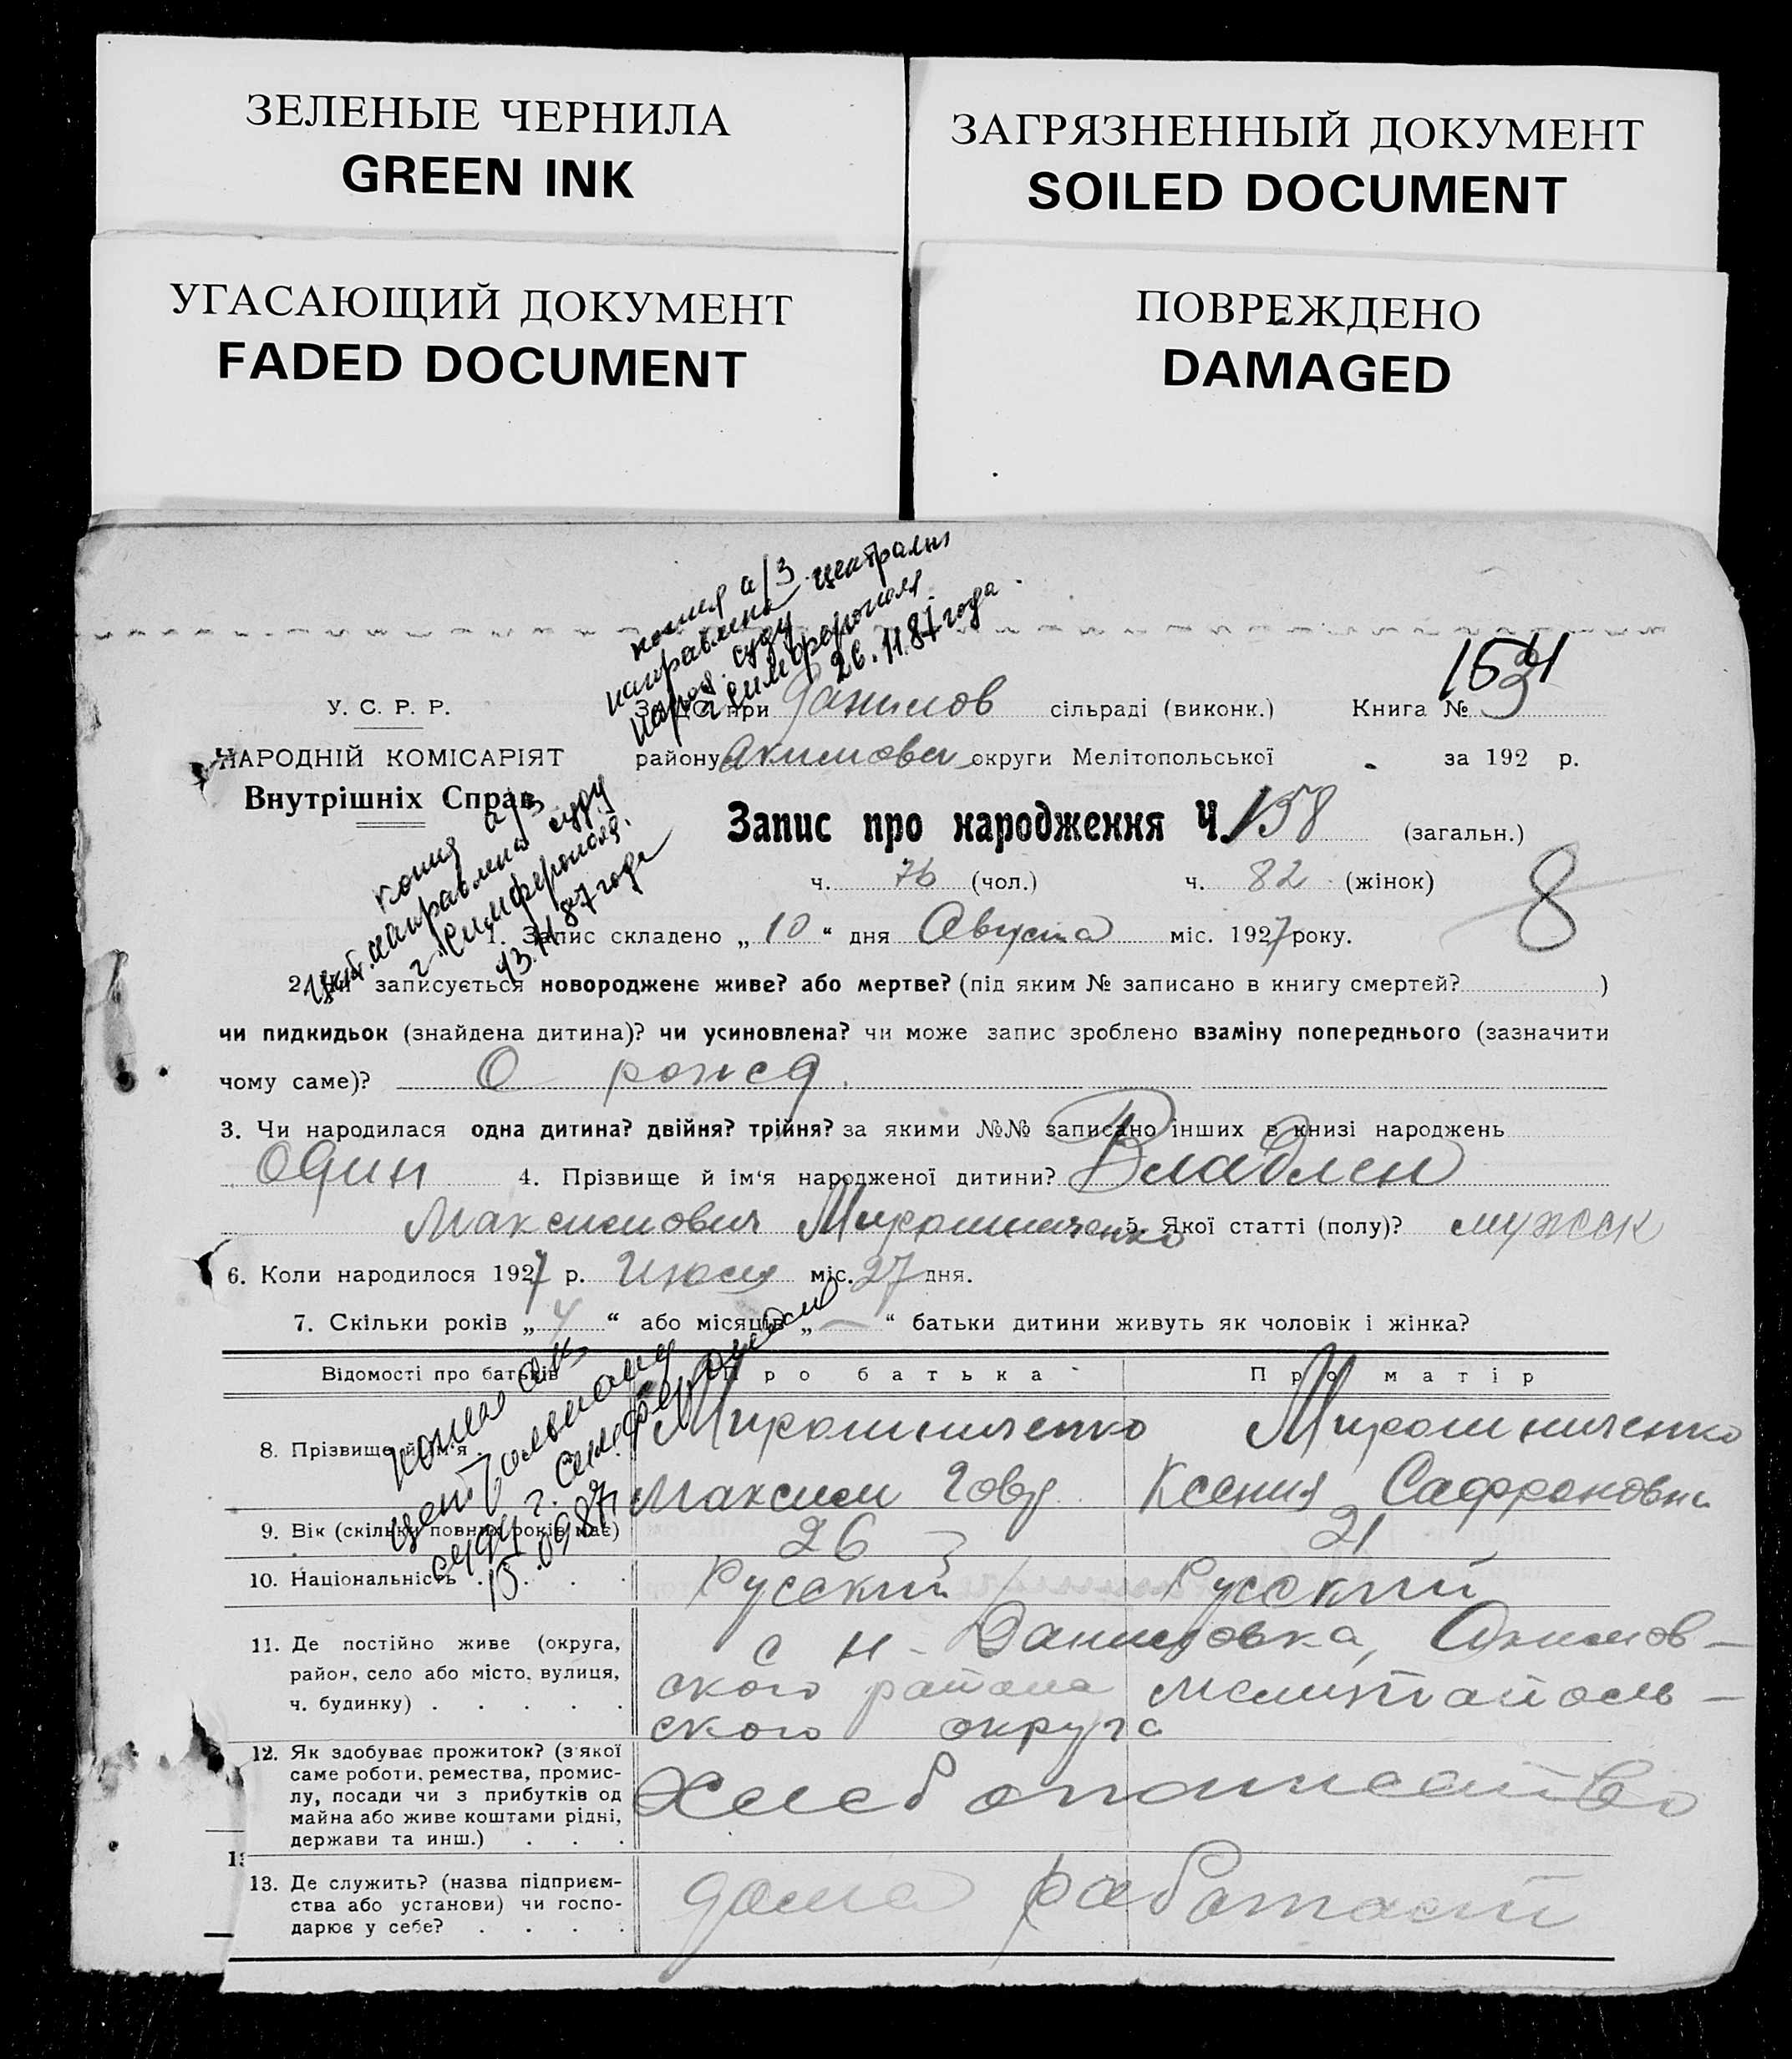 ЗЕЛЕНЫЕ ЧЕРНИЛА
GREEN INK
ЗАГРЯЗНЕННЫЙ ДОКУМЕНТ
SOILED DOCUMENT
УГАСАЮЩИЙ ДОКУМЕНТ
FADED DOCUMENT
ПОВРЕЖДЕНО
DAMAGED
копия а/з
направлена централн
народ. суду
г Симферополя
26.11.87 года
У. С. Р. Р.
НАРОДНІЙ КОМІСАРІЯТ
Внутрішніх Справ
при Данилов сільраді (виконк.) Книга №
району Акимовск округи Мелітопольської за 192 р.
копия а/з
направлена суду
г. Симферополя.
13.11.87 года
Запис про народження Ч. 158 (загальн.)
ч. 76 (чол.) ч. 82 (жінок)
8
1. Запис складено „ 10 “ дня Августа міс. 1927 року.
2. Чи записується новороджене живе? або мертве? (під яким № записано в книгу смертей? )
чи пидкидьок (знайдена дитина)? чи усиновлена? чи може запис зроблено взаміну попереднього (зазначити
чому саме)? О рожд.
3. Чи народилася одна дитина? двійня? трійня? за якими №№ записано інших в книзі народжень
Один 4. Прізвище й ім‘я народженої дитини? Владлен
Максимович Мирошниченко 5. Якої статті (полу)? мужск
6. Коли народилося 1927 р. Июля міс. 27 дня.
7. Скільки років „ 4 “ або місяців „ — “ батьки дитини живуть як чоловік і жінка?
Відомості про батьків Про батька Про матір
копия а/з
центральному
суду г. Симферополя
15.09.87г
8. Прізвище й ім‘я Мирошниченко Мирошниченко
Максим Ксения Сафроновна
9. Вік (скільки повних років має) 26 21
10. Національність Русский Русский
11. Де постійно живе (округа, район, село або місто, вулиця, ч. будинку) с Н-Даниловка, Акимов-
ского района Мелитополь-
ского округа
12. Як здобуває прожиток? (з якої саме роботи, ремества, промис-
лу, посади чи з прибутків од
майна або живе коштами рідні,
держави та инш.) Хлебопашество
13. Де служить? (назва підприєм-
ства або установи) чи госпо-
дарює у себе? дома работает